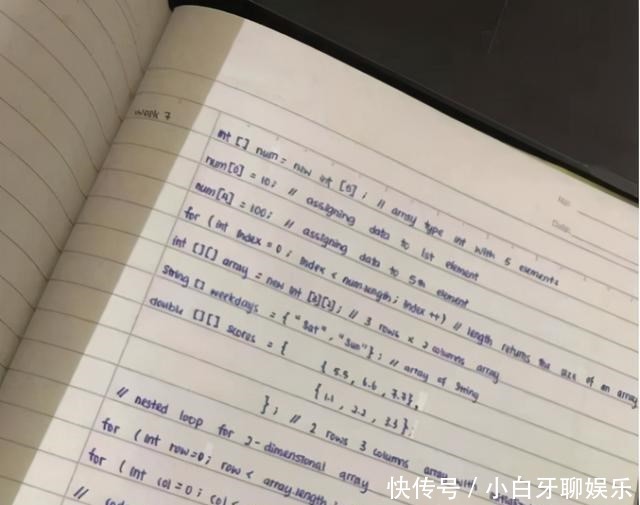 week 7
No:
Date:
int [] num = new int [5]; // array type int with 5 elements
num[0] = 10; // assigning data to 1st element
num[4] = 100; // assigning data to 5th element
for (int index = 0; index < num.length; index ++) // length returns the size of an array
int [][] array = new int [3][2]; // 3 rows x 2 columns array
String [] weekdays = {"Sat", "Sun"}; // array of String
double [][] scores = {
{5.5, 6.6, 7.7},
{1.1, 2.2, 3.3}
}; // 2 rows 3 columns array
// nested loop for 2-dimensional array
for (int row=0; row < array.length
for (int col = 0; col <
//
快传号 / 小白牙聊娱乐